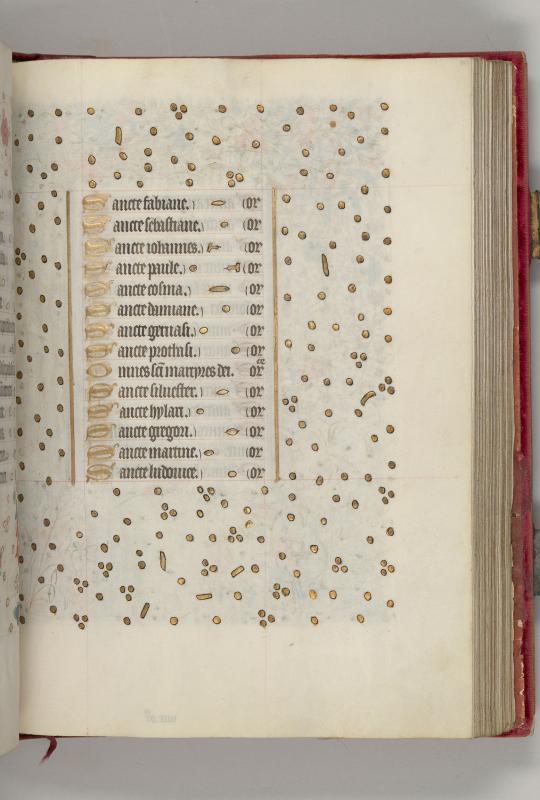 Sancte fabiane. or
Sancte sebastiane. or
Sancte iohannes. or
Sancte paule. or
Sancte cosma. or
Sancte damiane. or
Sancte geruasi. or
Sancte prothasi. or
Omnes sci martyres dei. or
Sancte siluester. or
Sancte hylari. or
Sancte gregori. or
Sancte martine. or
Sancte ludouice. or